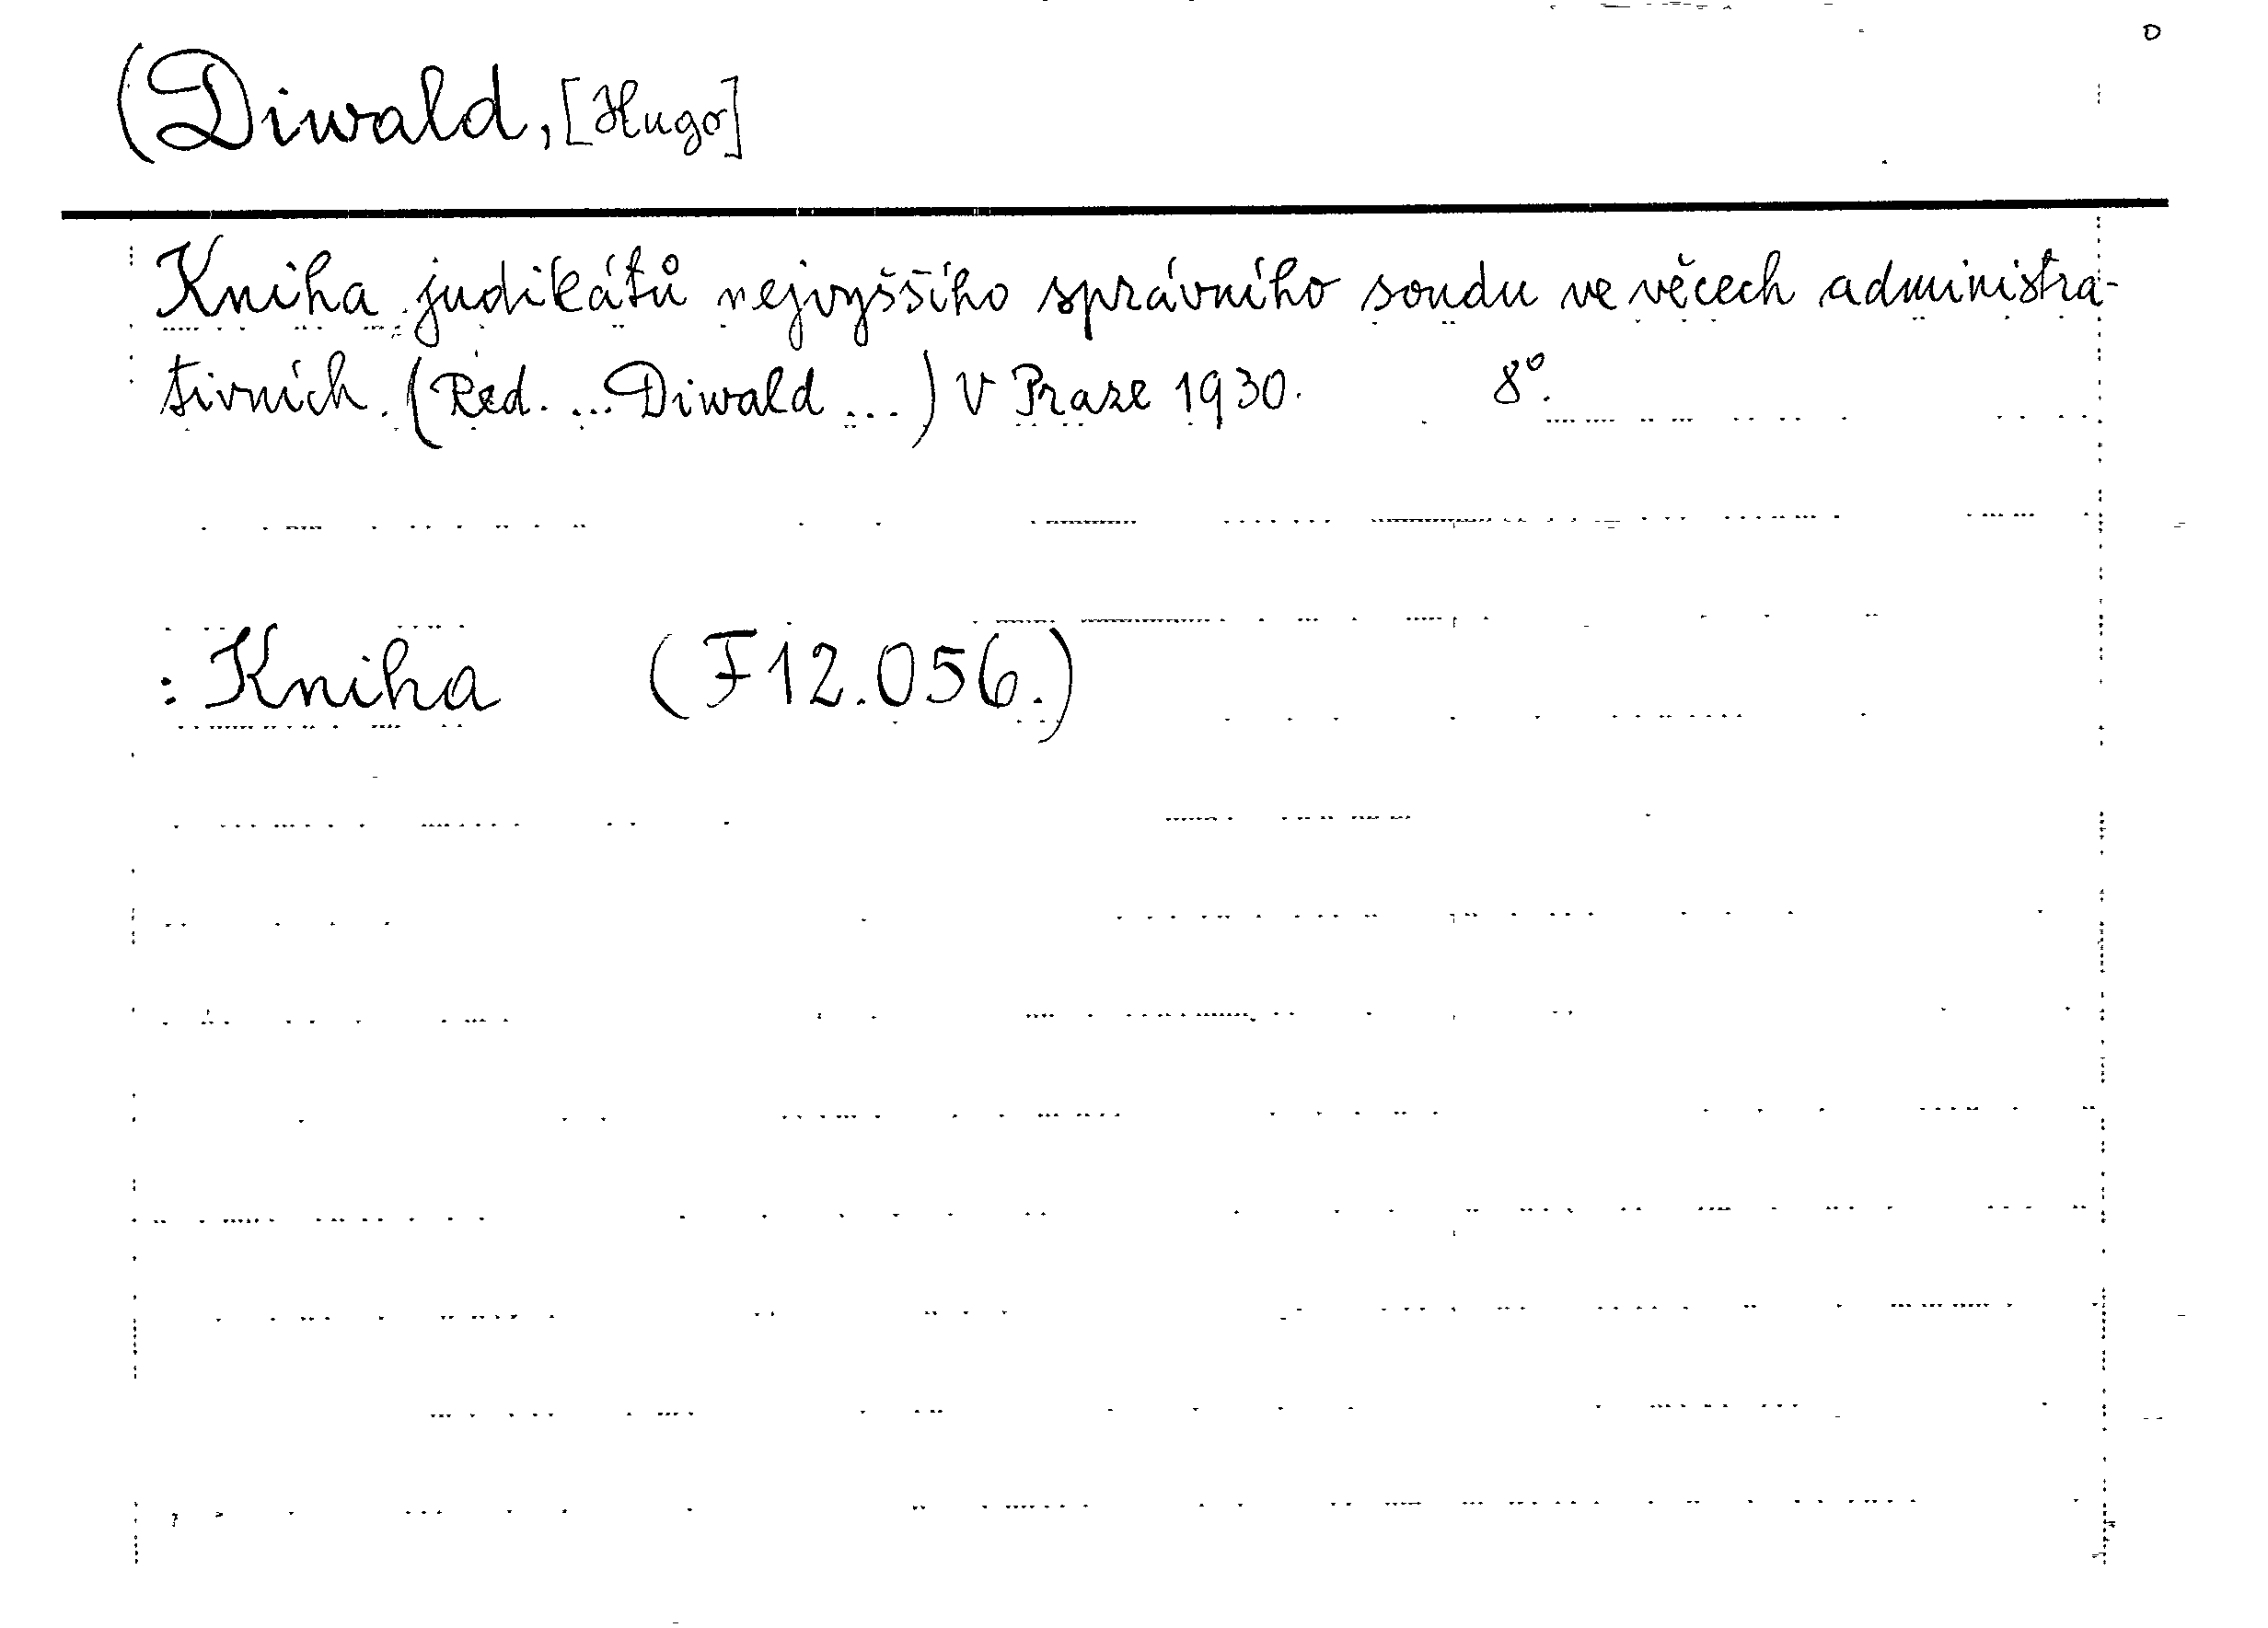 (Diwald, [Hugo]
Kniha judikátů nejvyššího správního soudu ve věcech administra-
tivních. (Red. ... Diwald ...) V Praze 1930. 8°.
: Kniha (F 12.056.)